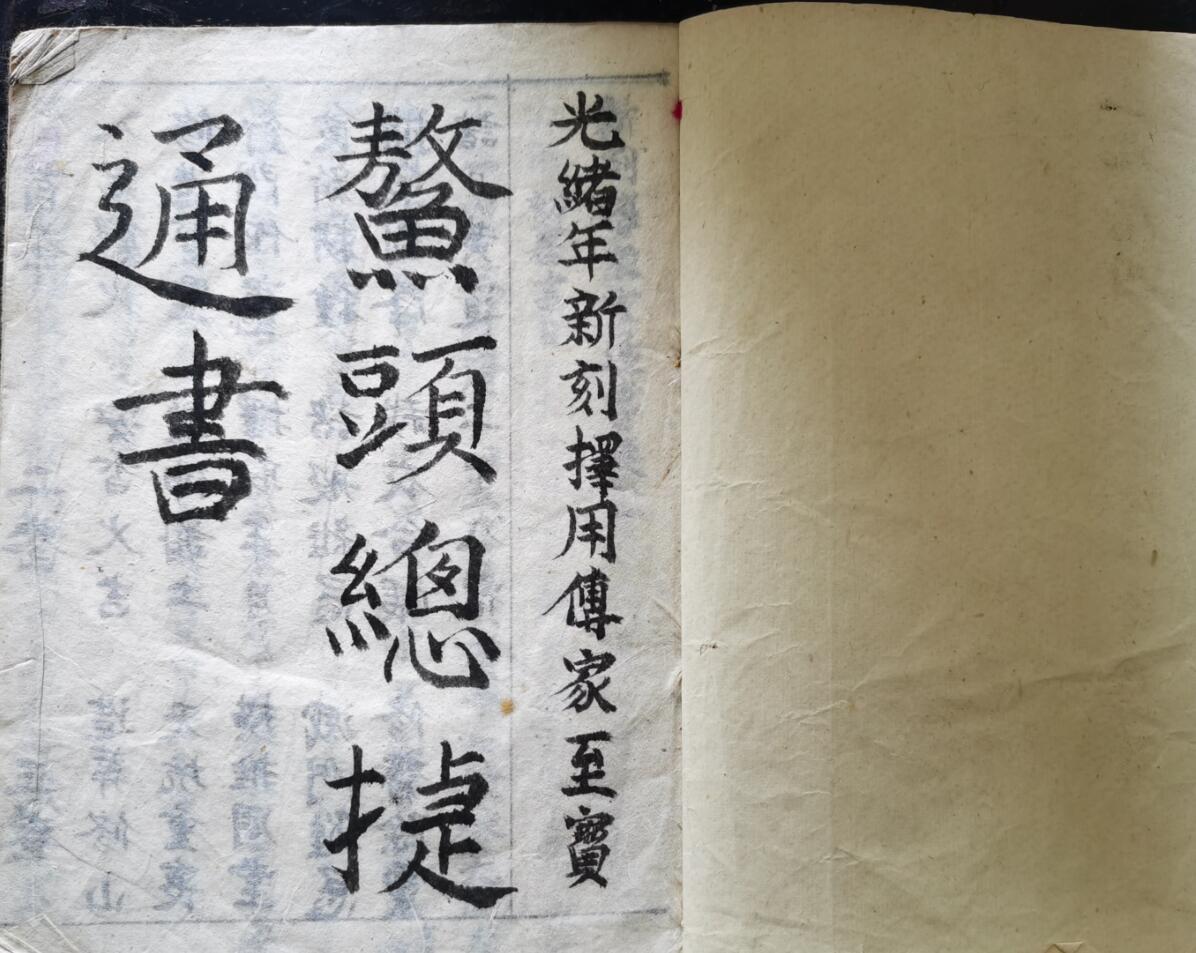 光緒年新刻擇用傳家至寳
鰲頭總捷
通書